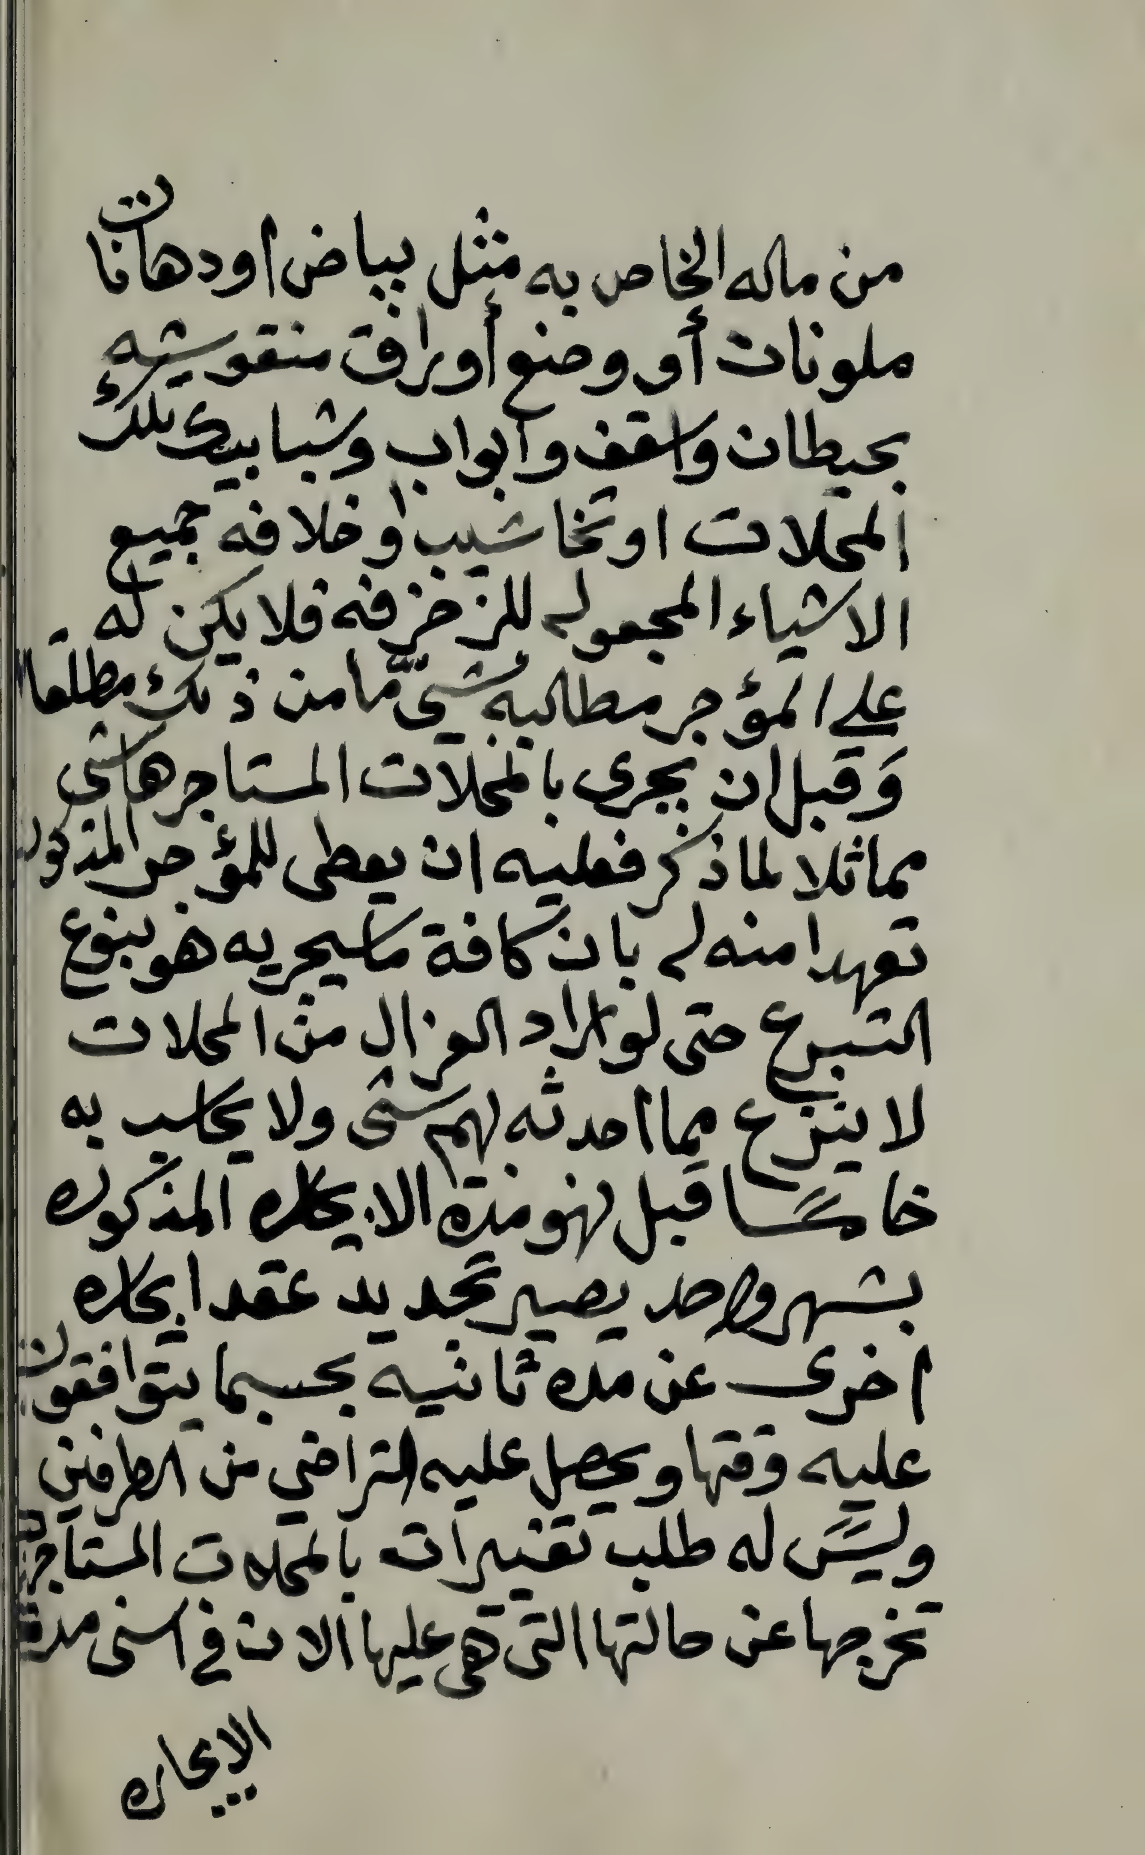 من ماله الخاص به مثل بياض اودهانات
ملونات أو وضع أوراق منقوشيه
بحيطان واسقف وابواب وشبابيك تلك
المحلات او تخاشيب او خلافه جميع
الاشياء المجعوله للزخزفه فلا يكن له
علي المؤجر مطالبه بشيّ ما من ذلك مطلقا
وَقبل ان يجري بالمحلات المستاجرها شى
مماثلا لماذكر فعليه ان يعطى للمؤجر المذكور
تعهدا منه له بان كافة ماسيجريه هو بنوع
التبرع حتى لو اراد العزال من المحلات
لا ينزع مما احدثه لهم شى ولا يحاسب به
خامسًا قبل نهو مدة الايجاره المذكوره
بشهر واحد يصير تجديد عقد ايجاره
اخرى عن مده ثانيه بحسبما يتوافقون
عليه وقتها ويحصل عليه التراضي من الطرفين
وليسَ له طلب تغييرات بالمحلات المستاجره
تخرجها عن حالتها التى هى عليها الان في اسنى مدة
الايجاره